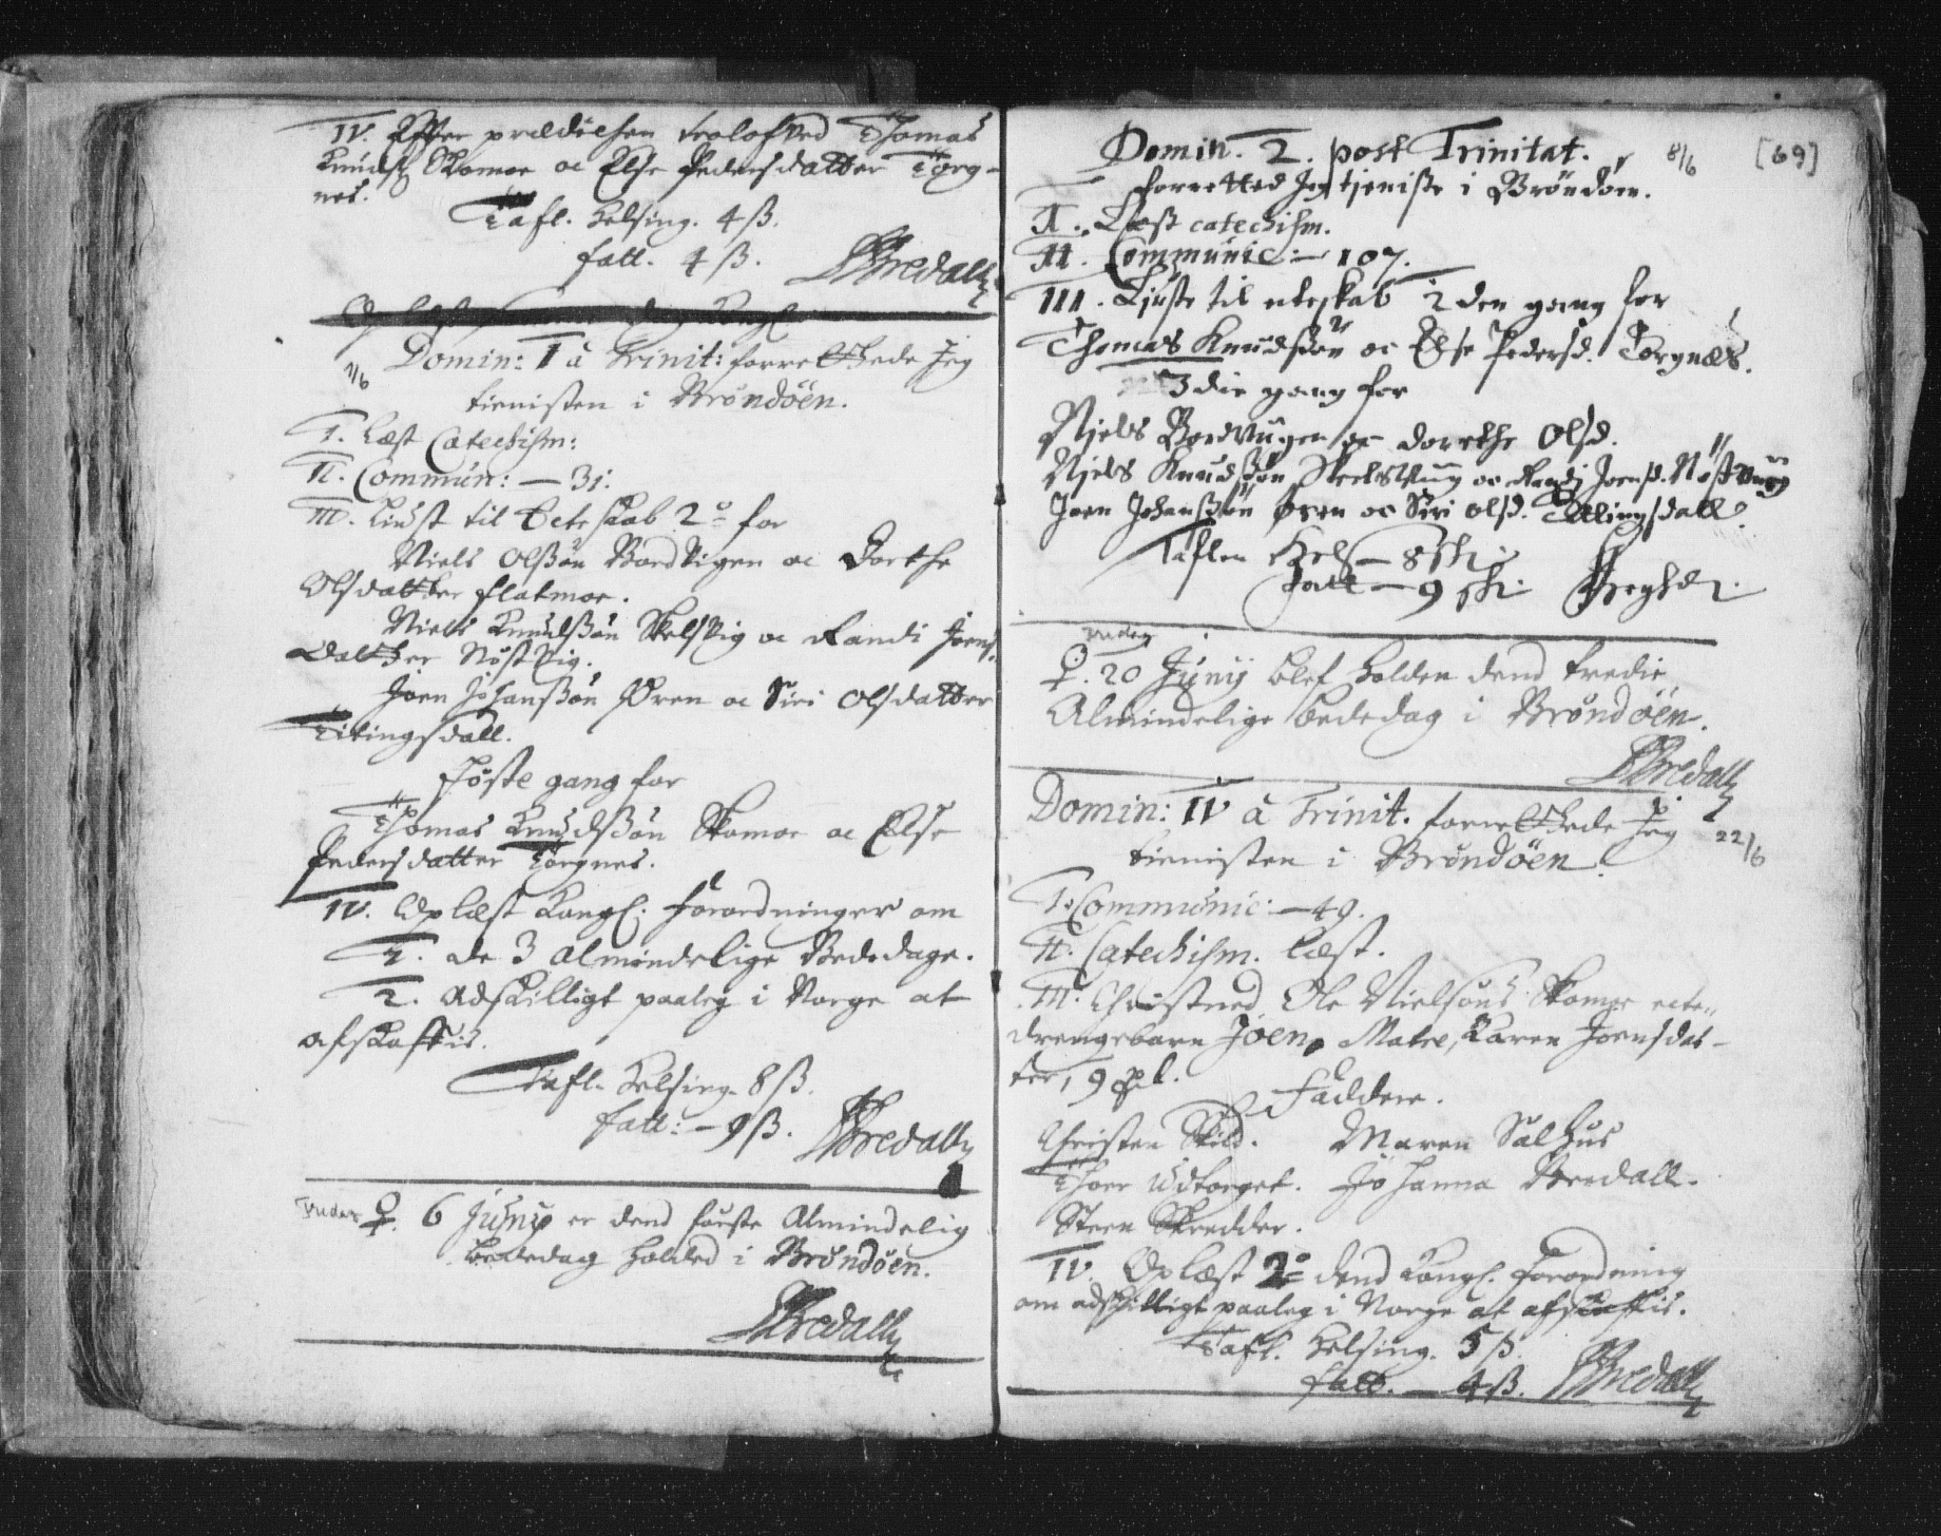 IV. Effter prædichen trolofved Thomas
Knuds: Skomoe oc Else Pedersdatter Torg-
nes.
Tafl. Helsing. 4 ß.
fatt. 4 ß. Bredall
Domin: I à Trinit: forrettede Jeg
1/6
tienisten i Brøndøen.
I. Læst Catechism:
II. Commun: — 31.
III. Liust til Ecteskab 2º for
Niels Olßøn Bordvigen oc Dorthe
Olsdatter flatmoe.
Niels Knudßøn Skelsvig oc Randi Joens-
datter Nøstvig.
Joen Johanßøn Øren oc Siri Olsdatter
Titingsdall.
første gang for
Thomas Knudßøn Skomoe oc Else
Pedersdatter Torgnes.
IV. Oplæst Kongl. forordninger om
1. de 3 Almindelige Bededage.
2. Adskilligt paaleg i Norge at
afskaffis.
Tafl. Helsing. 8 ß.
fatt: — 9 ß. Bredall
♀. 6 Junij er dend første Almindelig
bededag holded i Brøndøen.
Bredall
Domin. 2. post Trinitat. 8/6 [69]
forretted Jeg tieniste i Brøndøen.
I. Læst catechism.
II. Communic: — 107.
III. Liuste til ecteskab 2den gang for
Thomas Knudßøn oc Else Pedersd. Torgnæs.
3die gang for
Niels Bordvigen oc dorethe Olsd.
Niels Knudßøn Skelsvig oc Randj Joensd. Nøstvug
Joen Johanßøn Øren oc Siri Olsd. Tillingsdall.
Taflen Hels — 8 sk:
fatt — 9 sk:
♀. 20 Junij blef holden dend tredie
Almindelige bededag i Brøndøen.
Bredall
Domin: IV à Trinit. forrettede Jeg 22/6
tienisten i Brøndøen.
I. Communic: — 49.
II. Catechism. læst.
III. Christned Ole Nielsøns Skomoe ecte
drengebarn Joen, Matre, Karen Joensdat-
ter, 9
Faddere.
Christen Skild. Maren Salhus
Thore Udtorget. Johanna Bredall.
Steen Skredder.
IV. Oplæst 2º dend Kongl. forordning
om adskilligt paaleg i Norge at afskaffis.
Tafl. Helsing. 5 ß.
fatt. — 4 ß. Bredall